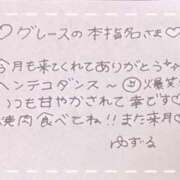 ♡グレースの本指名さま♡
今月も来てくれてありがとう
ヘンテコダンス〜 爆笑
いつも甘やかされて幸です♡
焼肉食べてね!!また来月♡
ゆずる